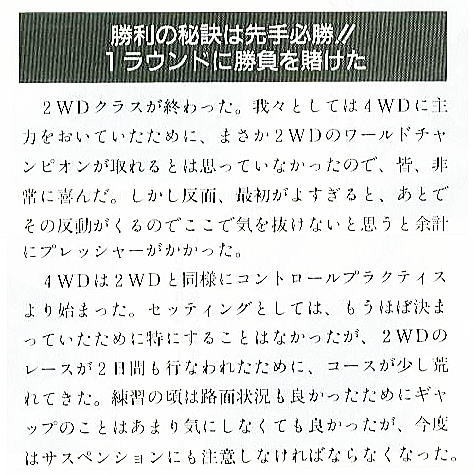 勝利の秘訣は先手必勝!!
1ラウンドに勝負を賭けた
2WDクラスが終わった。我々としては4WDに主
力をおいていたために、まさか2WDのワールドチャ
ンピオンが取れるとは思っていなかったので、皆、非
常に喜んだ。しかし反面、最初がよすぎると、あとで
その反動がくるのでここで気を抜けないと思うと余計
にプレッシャーがかかった。
4WDは2WDと同様にコントロールプラクティス
より始まった。セッティングとしては、もうほぼ決ま
っていたために特にすることはなかったが、2WDの
レースが2日間も行なわれたために、コースが少し荒
れてきた。練習の頃は路面状況も良かったためにギャ
ップのことはあまり気にしなくても良かったが、今度
はサスペンションにも注意しなければならなくなった。